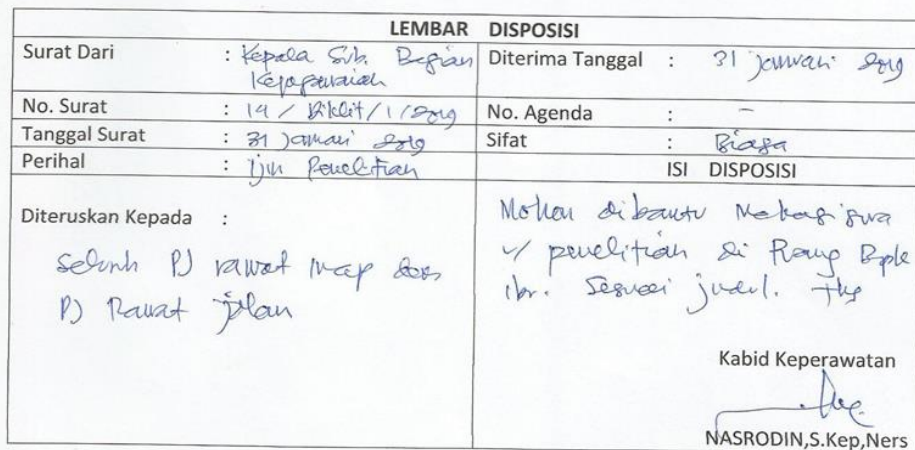 LEMBAR DISPOSISI
Surat Dari : Kepala Sub. Bagian
Kepegawaian
Diterima Tanggal : 31 Januari 2019
No. Surat : 14 / Diklit / 1 / 2019
No. Agenda : -
Tanggal Surat : 31 Januari 2019
Sifat : Biasa
Perihal : Ijin Penelitian
ISI DISPOSISI
Diteruskan Kepada :
Seluruh PJ rawat inap dan
PJ Rawat jalan
Mohon dibantu Mahasiswa
u/ penelitian di Ruang Bpk
ibu. Sesuai judul. Ths
Kabid Keperawatan
NASRODIN,S.Kep,Ners